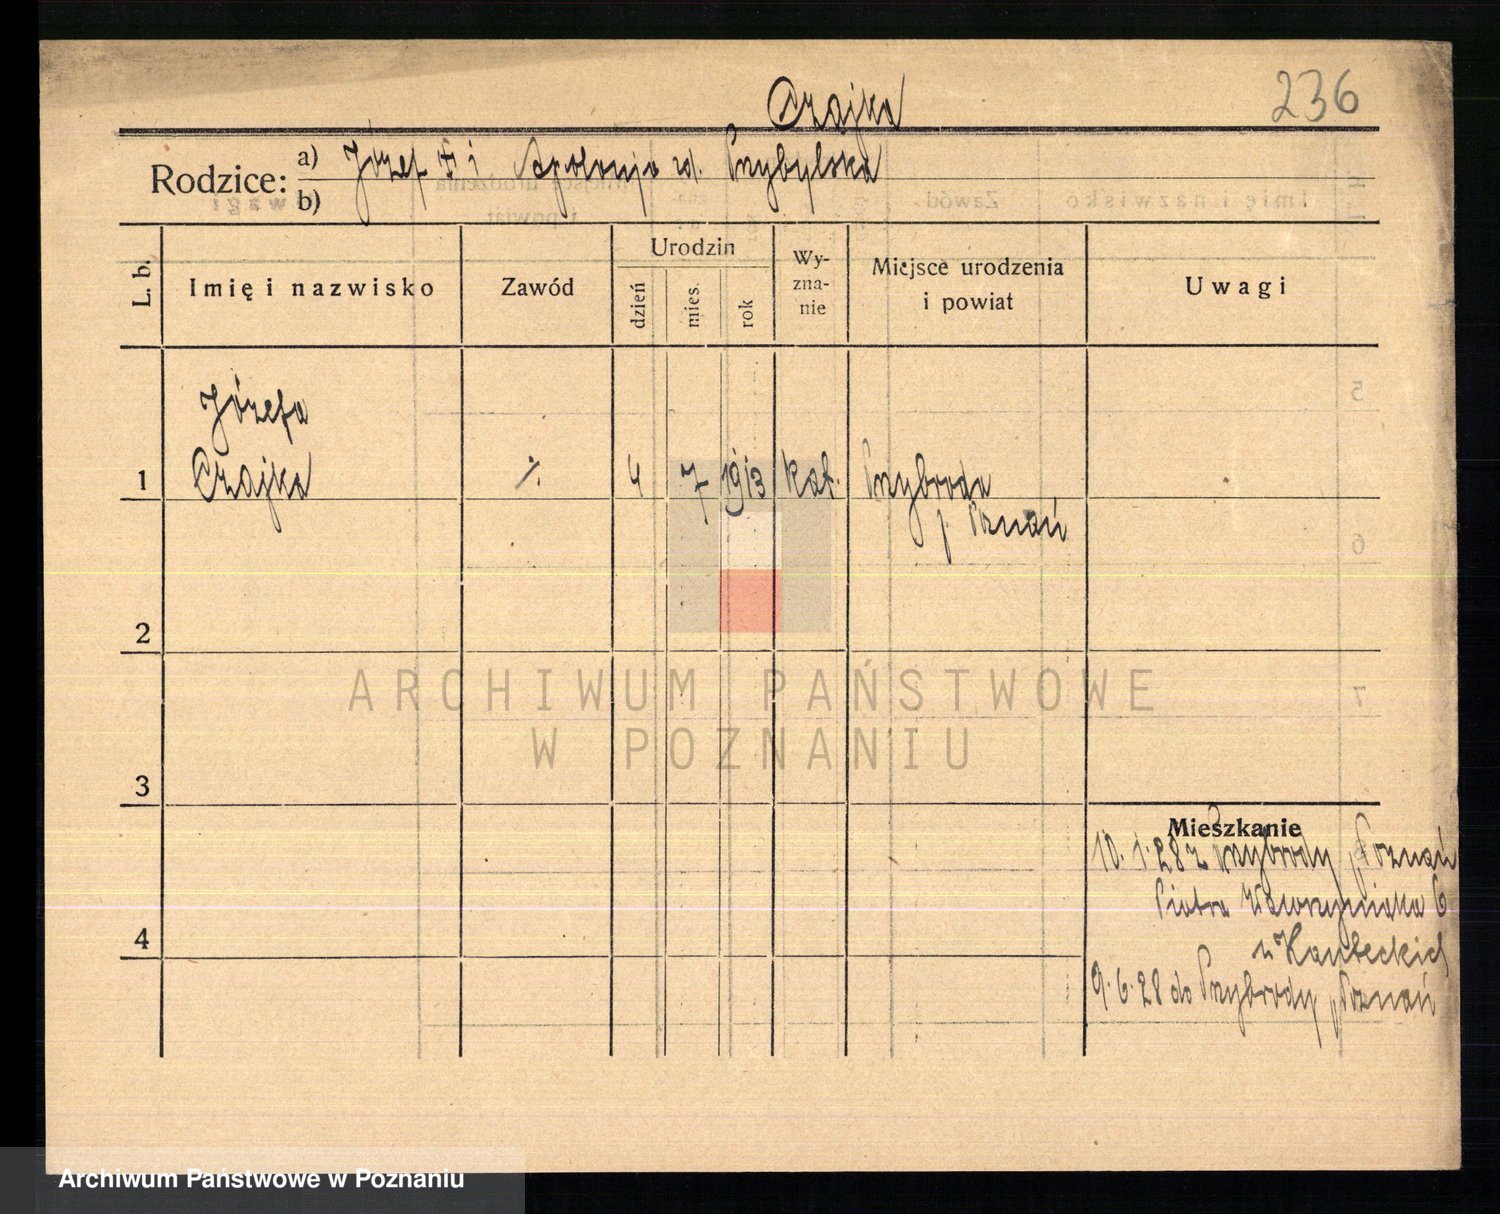 Czajka
236
Rodzice: a) Józef † i Apolonja rd. Przybylska
b)
L. b.
Imię i nazwisko
Zawód
Urodzin
dzień
mies.
rok
Wy-
zna-
nie
Miejsce urodzenia
i powiat
Uwagi
Józefa
1 Czajka ٪ 4 7 1913 kat. Przybroda
p. Poznań
2
3
4
Mieszkanie
10.1.28 z Przybrody, p. Poznań
Piotra Wawrzyniaka 6
u Haubeckich
9.6.28 do Przybrody, p. Poznań
ARCHIWUM PAŃSTWOWE
W POZNANIU
Archiwum Państwowe w Poznaniu